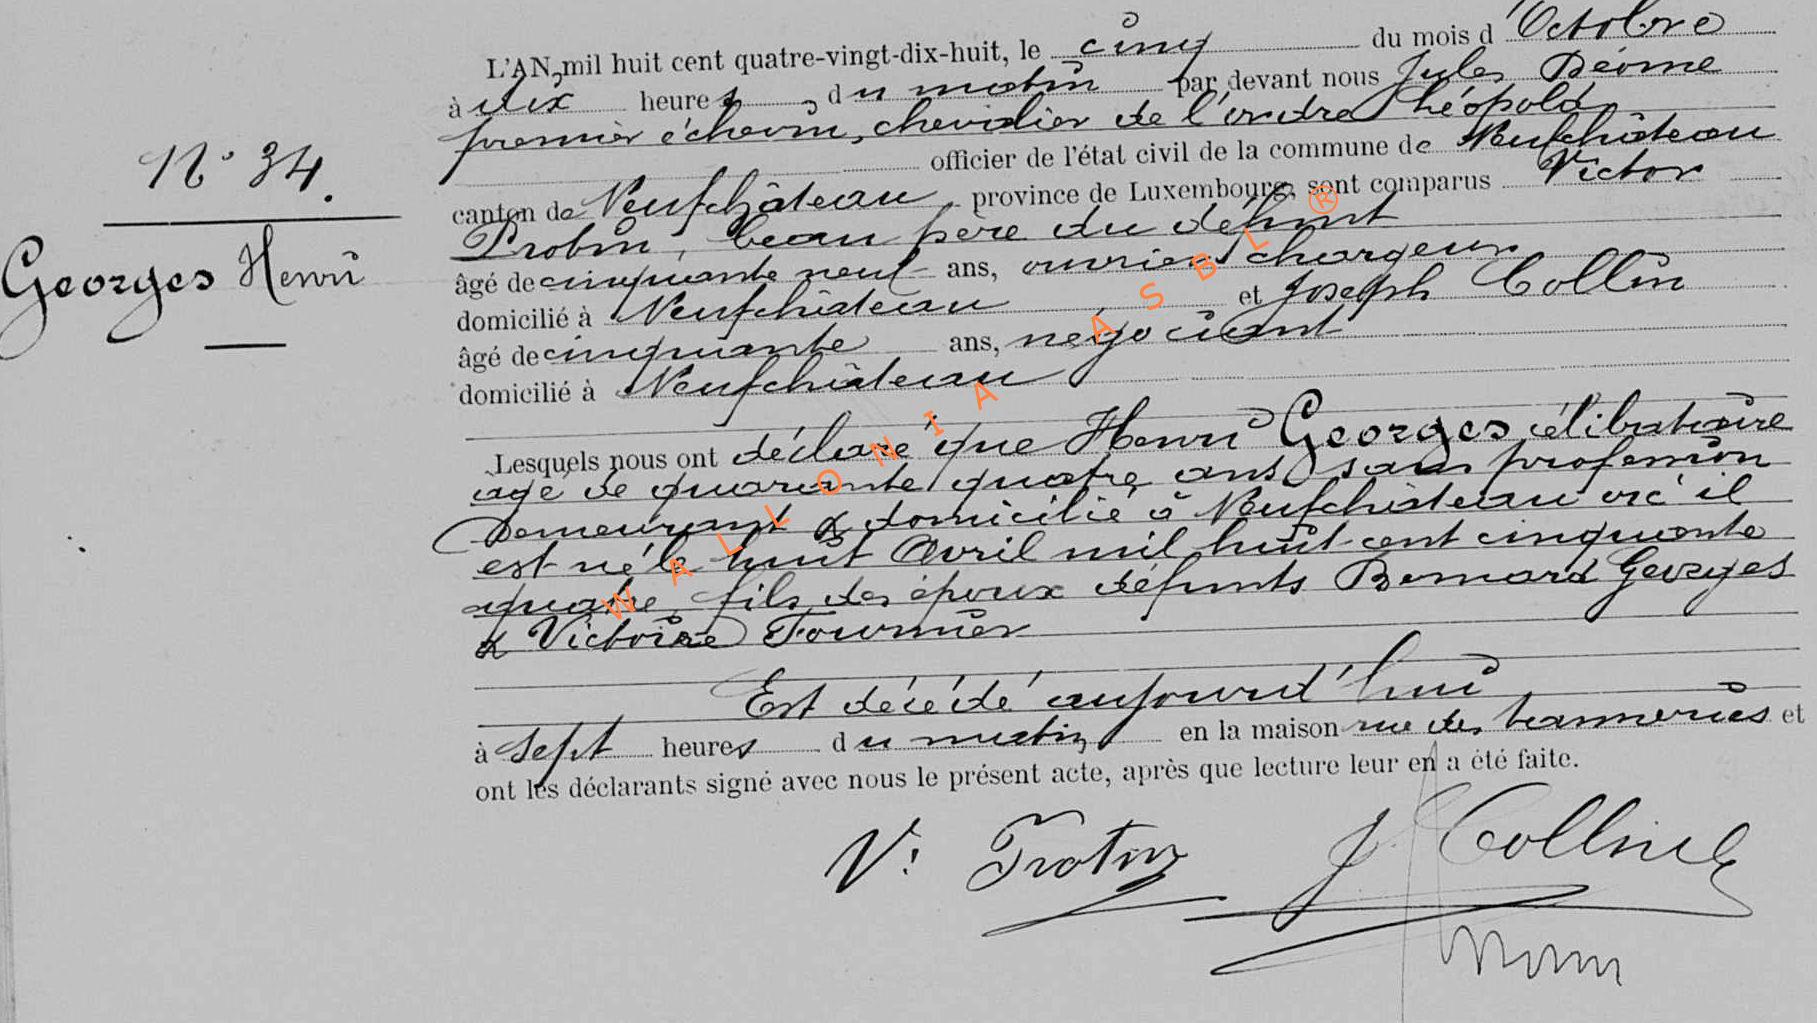 L'AN mil huit cent quatre-vingt-dix-huit, le cinq du mois d'Octobre
à dix heures du matin par devant nous Jules
premier échevin, chevalier de l'ordre Léopold,
officier de l'état civil de la commune de Neufchâteau
N° 34.
canton de Neufchâteau province de Luxembourg, sont comparus Victor
beau père du défunt
Georges Henri
âgé de cinquante neuf ans, ouvrier chargeur
domicilié à Neufchâteau et Joseph Collin
âgé de cinquante ans, négociant
domicilié à Neufchâteau
Lesquels nous ont déclaré que Henri Georges célibataire
agé de quarante quatre ans, sans profession
Demeurant & domicilié à Neufchâteau où il
est né le huit Avril mil huit cent cinquante
quatre, fils des époux défunts Bernard Georges
& Victoire Fournier
Est décédé aujourd'hui
à sept heures du matin en la maison rue des tanneries et
ont les déclarants signé avec nous le présent acte, après que lecture leur en a été faite.
V. Trotin J. Collin
WALLONIA ASBL ®